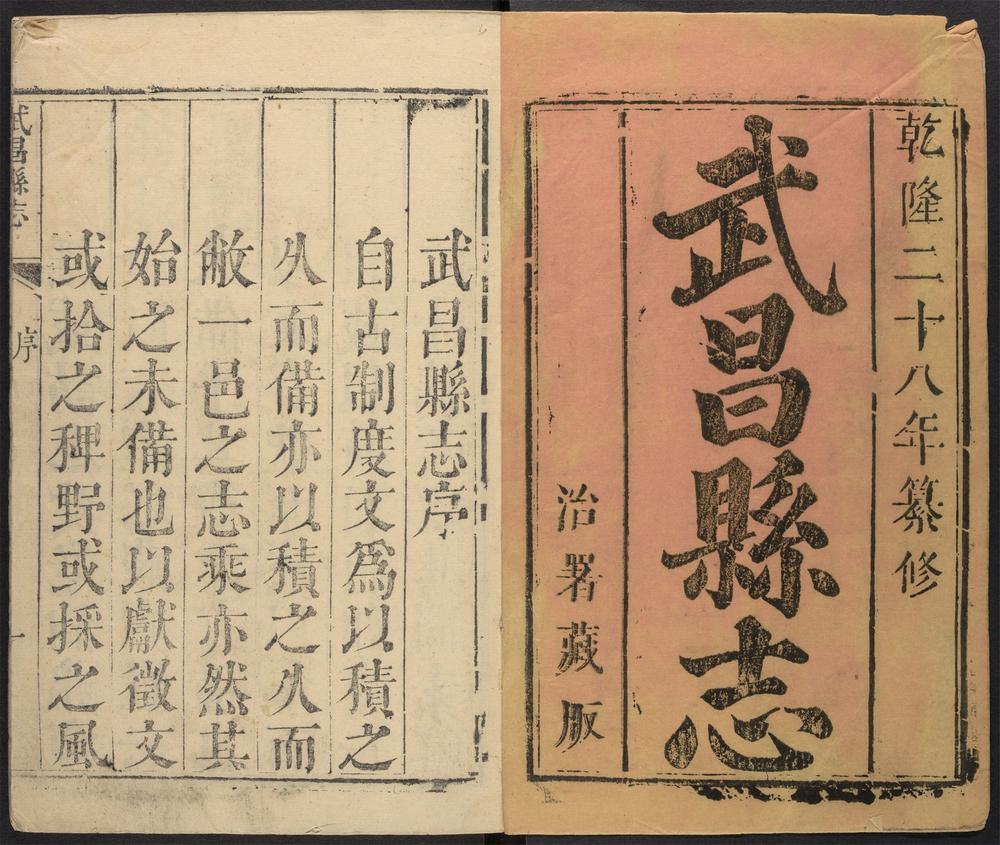 乾隆二十八年纂修
武昌縣志
治署藏版
武昌縣志序
自古制度文爲以積之
久而備亦以積之久而
敝一邑之志乘亦然其
始之未備也以獻徵文
或拾之稗野或採之風
武昌縣志
序
一